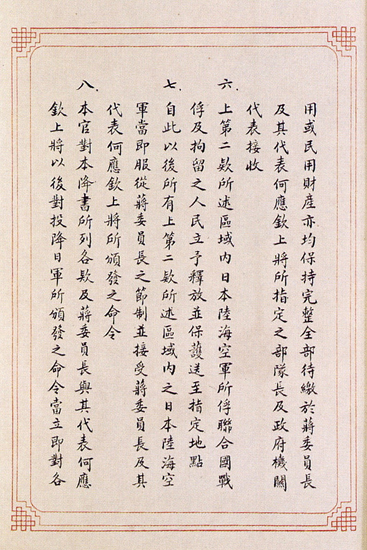 用或民用財産亦均保持完整全部待繳於蔣委員長
及其代表何應欽上將所指定之部隊長及政府機關
代表接收
六.上第二欵所述區域內日本陸海空軍所俘聯合國戰
俘及拘留之人民立予釋放並保護送至指定地點
七.自此以後所有上第二欵所述區域內之日本陸海空
軍當即服從蔣委員長之節制並接受蔣委員長及其
代表何應欽上將所頒發之命令
八.本官對本降書所列各欵及蔣委員長與其代表何應
欽上將以後對投降日軍所頒發之命令當立即對各